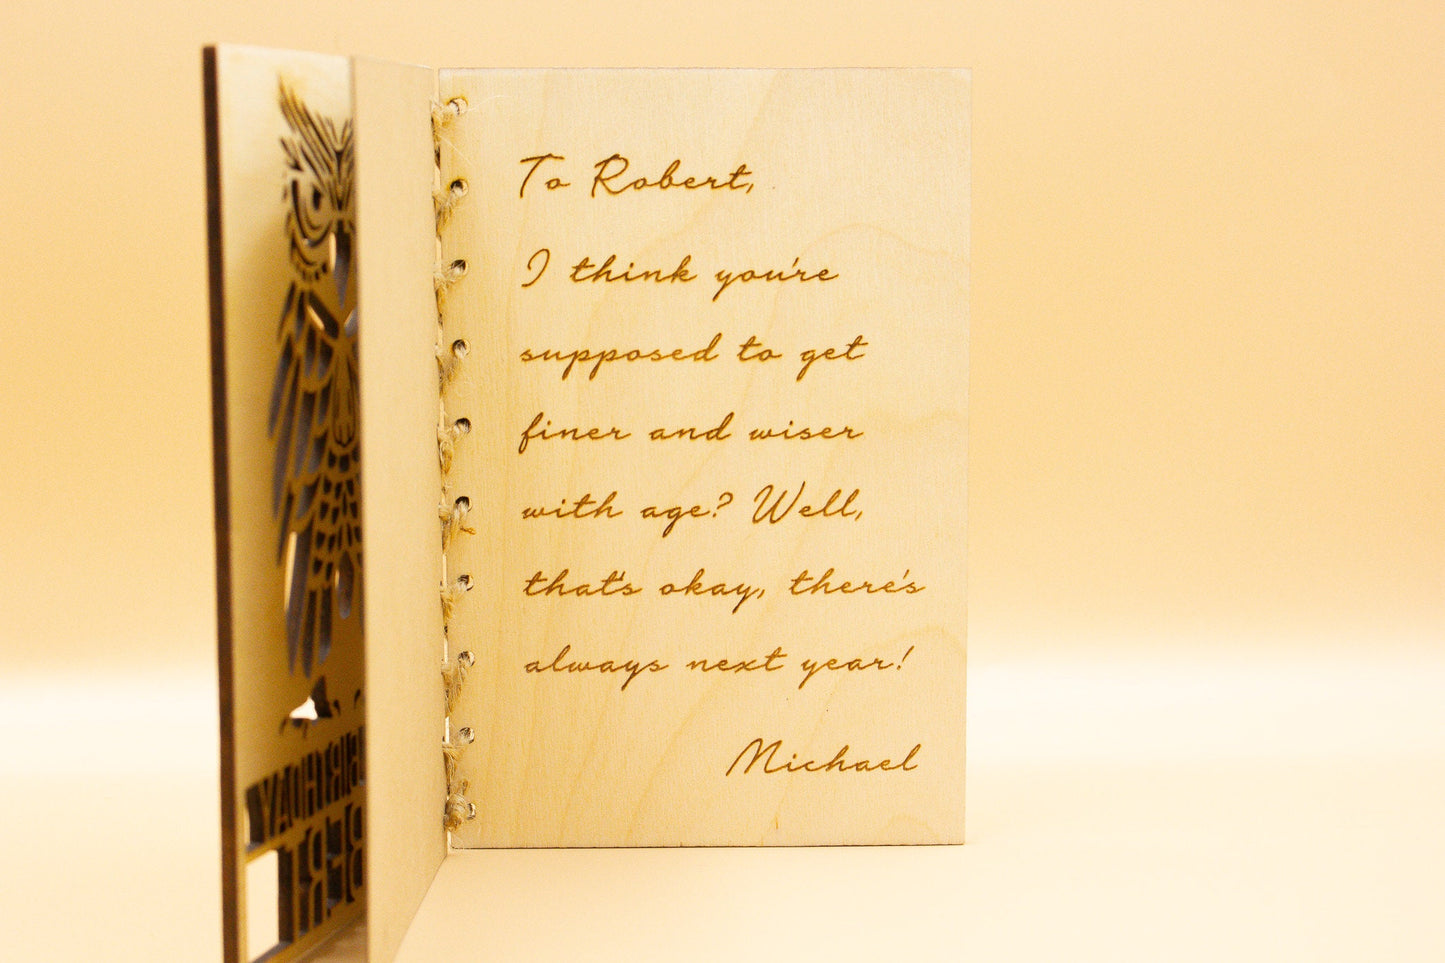 To Robert,
I think you're
supposed to get
finer and wiser
with age? Well,
that's okay, there's
always next year!
Michael